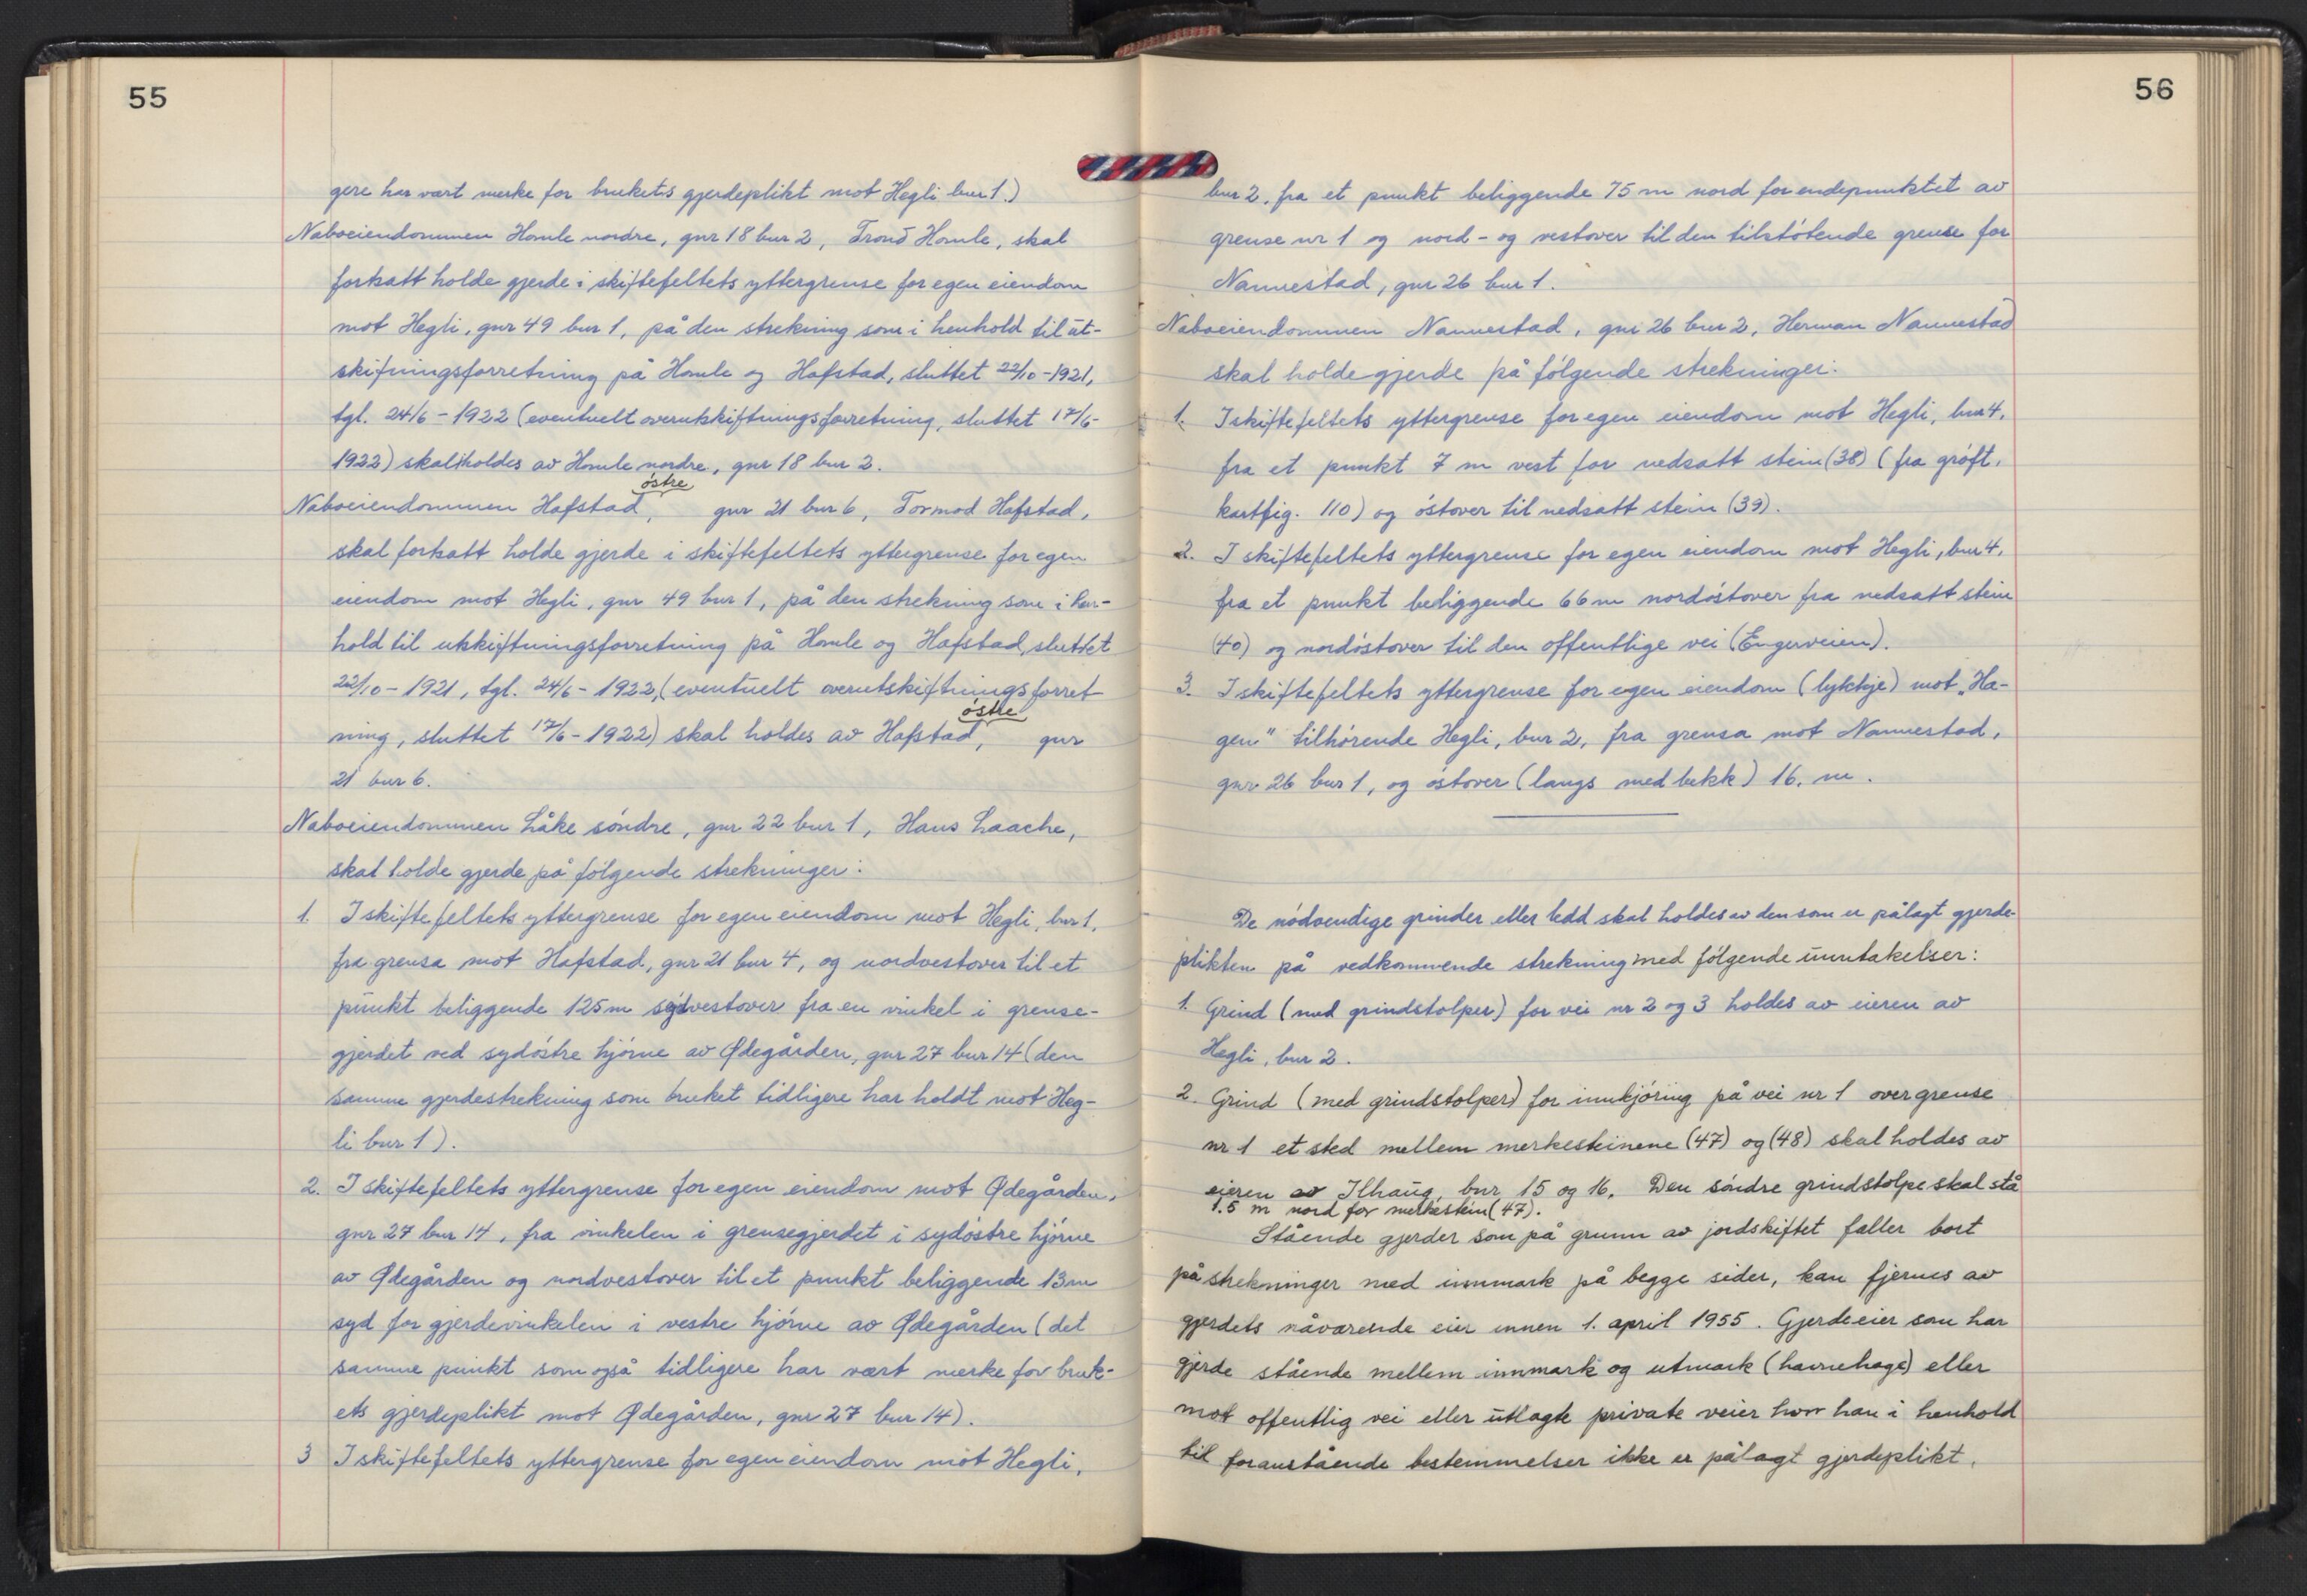 55
gere har vært merke for brukets gjerdeplikt mot Hegli bnr 1.)
Naboeiendommen Homle nordre, gnr 18 bnr 2, Trond Homle, skal
fortsatt holde gjerde i skiftefeltets yttergrense for egen eiendom
mot Hegli, gnr 49 bnr 1, på den strekning som i henhold til ut-
skiftningsforretning på Homle og Hafstad, sluttet 22/10-1921,
tgl. 24/6-1922 (eventuelt overutskiftningsforretning, sluttet 17/6-
1922) skal holdes av Homle nordre, gnr 18 bnr 2.
østre
Naboeiendommen Hafstad, gnr 21 bnr 6, Tormod Hafstad,
skal fortsatt holde gjerde i skiftefeltets yttergrense for egen
eiendom mot Hegli, gnr 49 bnr 1, på den strekning som i hen-
hold til utskiftningsforretning på Homle og Hafstad, sluttet
22/10-1921, tgl. 24/6-1922, (eventuelt overutskiftningsforret-
østre
ning, sluttet 17/6-1922) skal holdes av Hafstad, gnr
21 bnr 6.
Naboeiendommen Låke søndre, gnr 22 bnr 1, Hans Laache,
skal holde gjerde på følgende strekninger:
1. I skiftefeltets yttergrense for egen eiendom mot Hegli, bnr 1,
fra grensa mot Hafstad, gnr 21 bnr 4, og nordvestover til et
punkt beliggende 125 m sydvestover fra en vinkel i grense-
gjerdet ved sydøstre hjørne av Ødegården, gnr 27 bnr 14 (den
samme gjerdestrekning som bruket tidligere har holdt mot Heg-
li bnr 1).
2. I skiftefeltets yttergrense for egen eiendom mot Ødegården,
gnr 27 bnr 14, fra vinkelen i grensegjerdet i sydøstre hjørne
av Ødegården og nordvestover til et punkt beliggende 13 m
syd for gjerdevinkelen i vestre hjørne av Ødegården (det
samme punkt som også tidligere har vært merke for bruk-
ets gjerdeplikt mot Ødegården, gnr 27 bnr 14).
3 I skiftefeltets yttergrense for egen eiendom mot Hegli,
56
bnr 2, fra et punkt beliggende 75 m nord for endepunktet av
grense nr 1 og nord- og vestover til den tilstøtende grense for
Nannestad, gnr 26 bnr 1.
Naboeiendommen Nannestad, gnr 26 bnr 2, Herman Nannestad
skal holde gjerde på følgende strekninger:
1. I skiftefeltets yttergrense for egen eiendom mot Hegli, bnr 4,
fra et punkt 7 m vest for nedsatt stein (38) (fra grøft,
kartfig. 110) og østover til nedsatt stein (39).
2. I skiftefeltets yttergrense for egen eiendom mot Hegli, bnr 4,
fra et punkt beliggende 66 m nordøstover fra nedsatt stein
(40) og nordøstover til den offentlige vei (Engerveien).
3. I skiftefeltets yttergrense for egen eiendom (lykkje) mot "Ha-
gen" tilhørende Hegli, bnr 2, fra grensa mot Nannestad,
gnr 26 bnr 1, og østover (langs med bekk) 16. m.
De nødvendige grinder eller ledd skal holdes av den som er pålagt gjerde-
plikten på vedkommende strekning med følgende unntakelser:
1. Grind (med grindstolper) for vei nr 2 og 3 holdes av eieren av
Hegli, bnr 2.
2. Grind (med grindstolper) for innkjøring på vei nr 1 over grense
nr 1 et sted mellem merkesteinene (47) og (48) skal holdes av
eieren av Ilhaug, bnr 15 og 16. Den søndre grindstolpe skal stå
1.5 m nord for merkestein (47).
Stående gjerder som på grunn av jordskiftet faller bort
på strekninger med innmark på begge sider, kan fjernes av
gjerdets nåværende eier innen 1. april 1955. Gjerdeeier som har
gjerde stående mellem innmark og utmark (havnehage) eller
mot offentlig vei eller utlagte private veier hvor han i henhold
til foranstående bestemmelser ikke er pålagt gjerdeplikt,